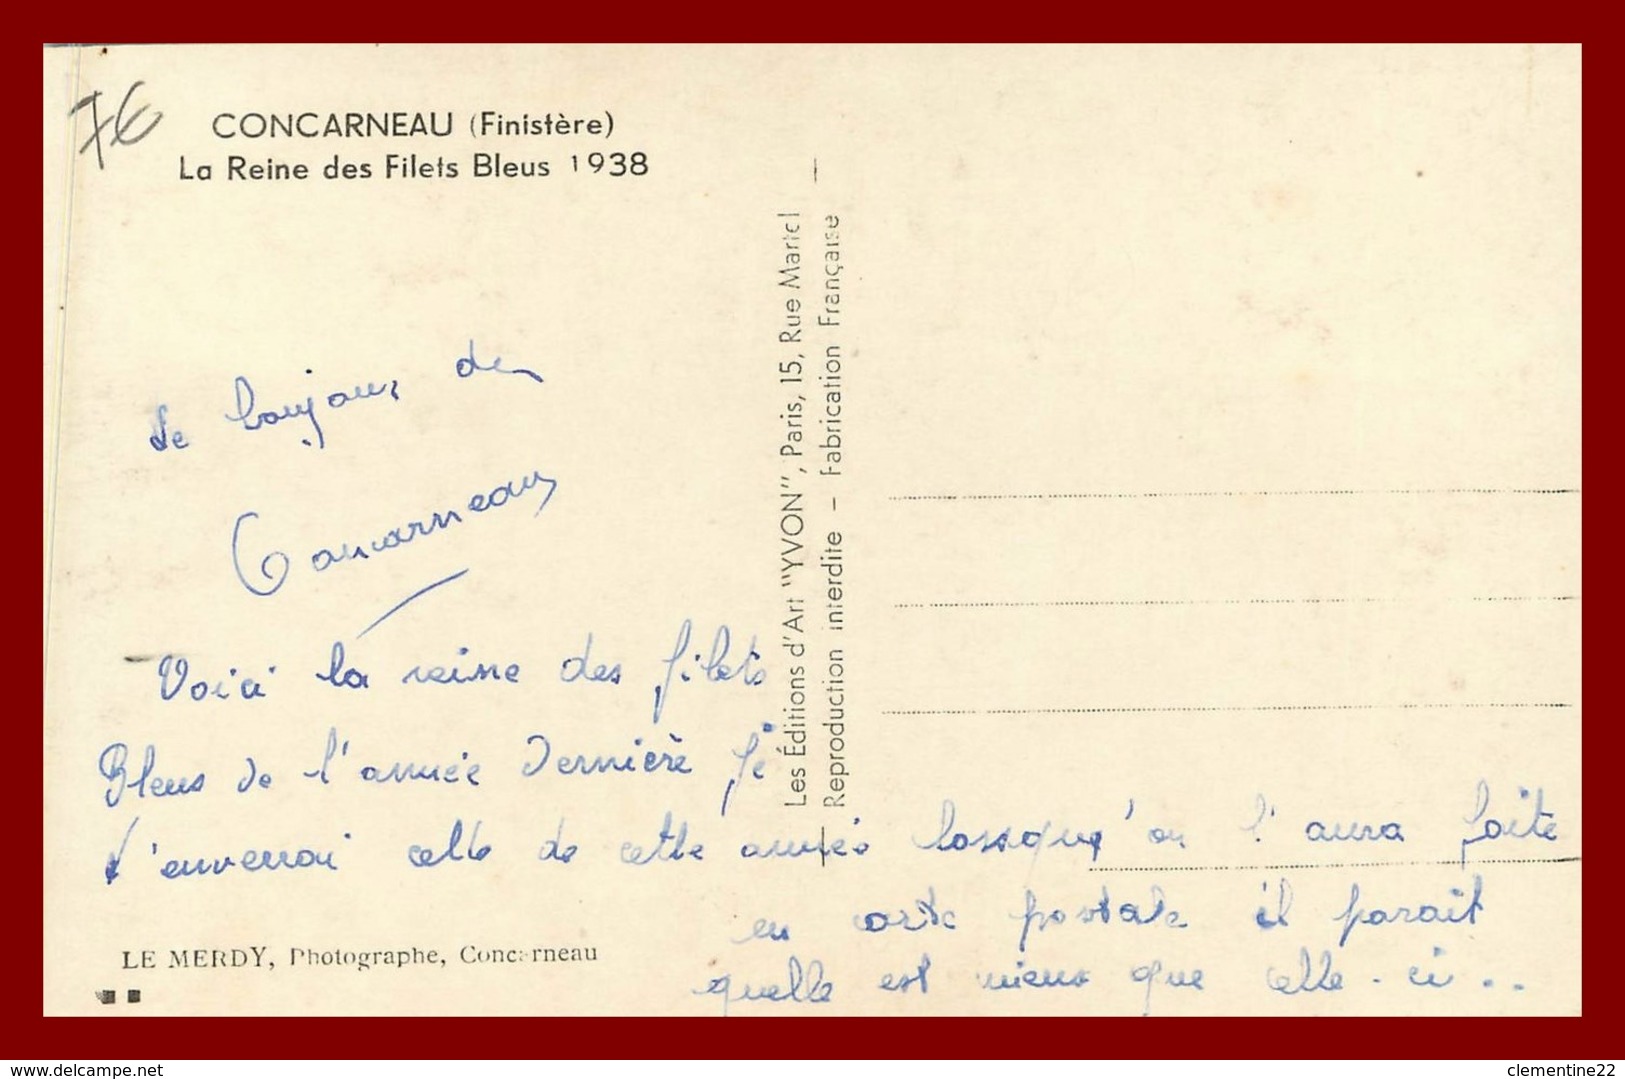 7€
CONCARNEAU (Finistère)
La Reine des Filets Bleus 1938
Le bonjour de
Concarneau
Voici la reine des filets
Bleus de l'année dernière je
t'enverrai celle de cette année lorsqu'on l'aura faite
en carte postale il parait
quelle est mieux que celle-ci..
LE MERDY, Photographe, Concarneau
Les Éditions d'Art "YVON", Paris, 15, Rue Martel
Reproduction interdite – Fabrication Française
www.delcampe.net
clementine22